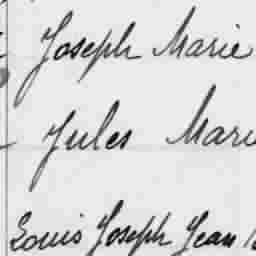 Joseph Marie
Jules Mari
Louis Joseph Jean